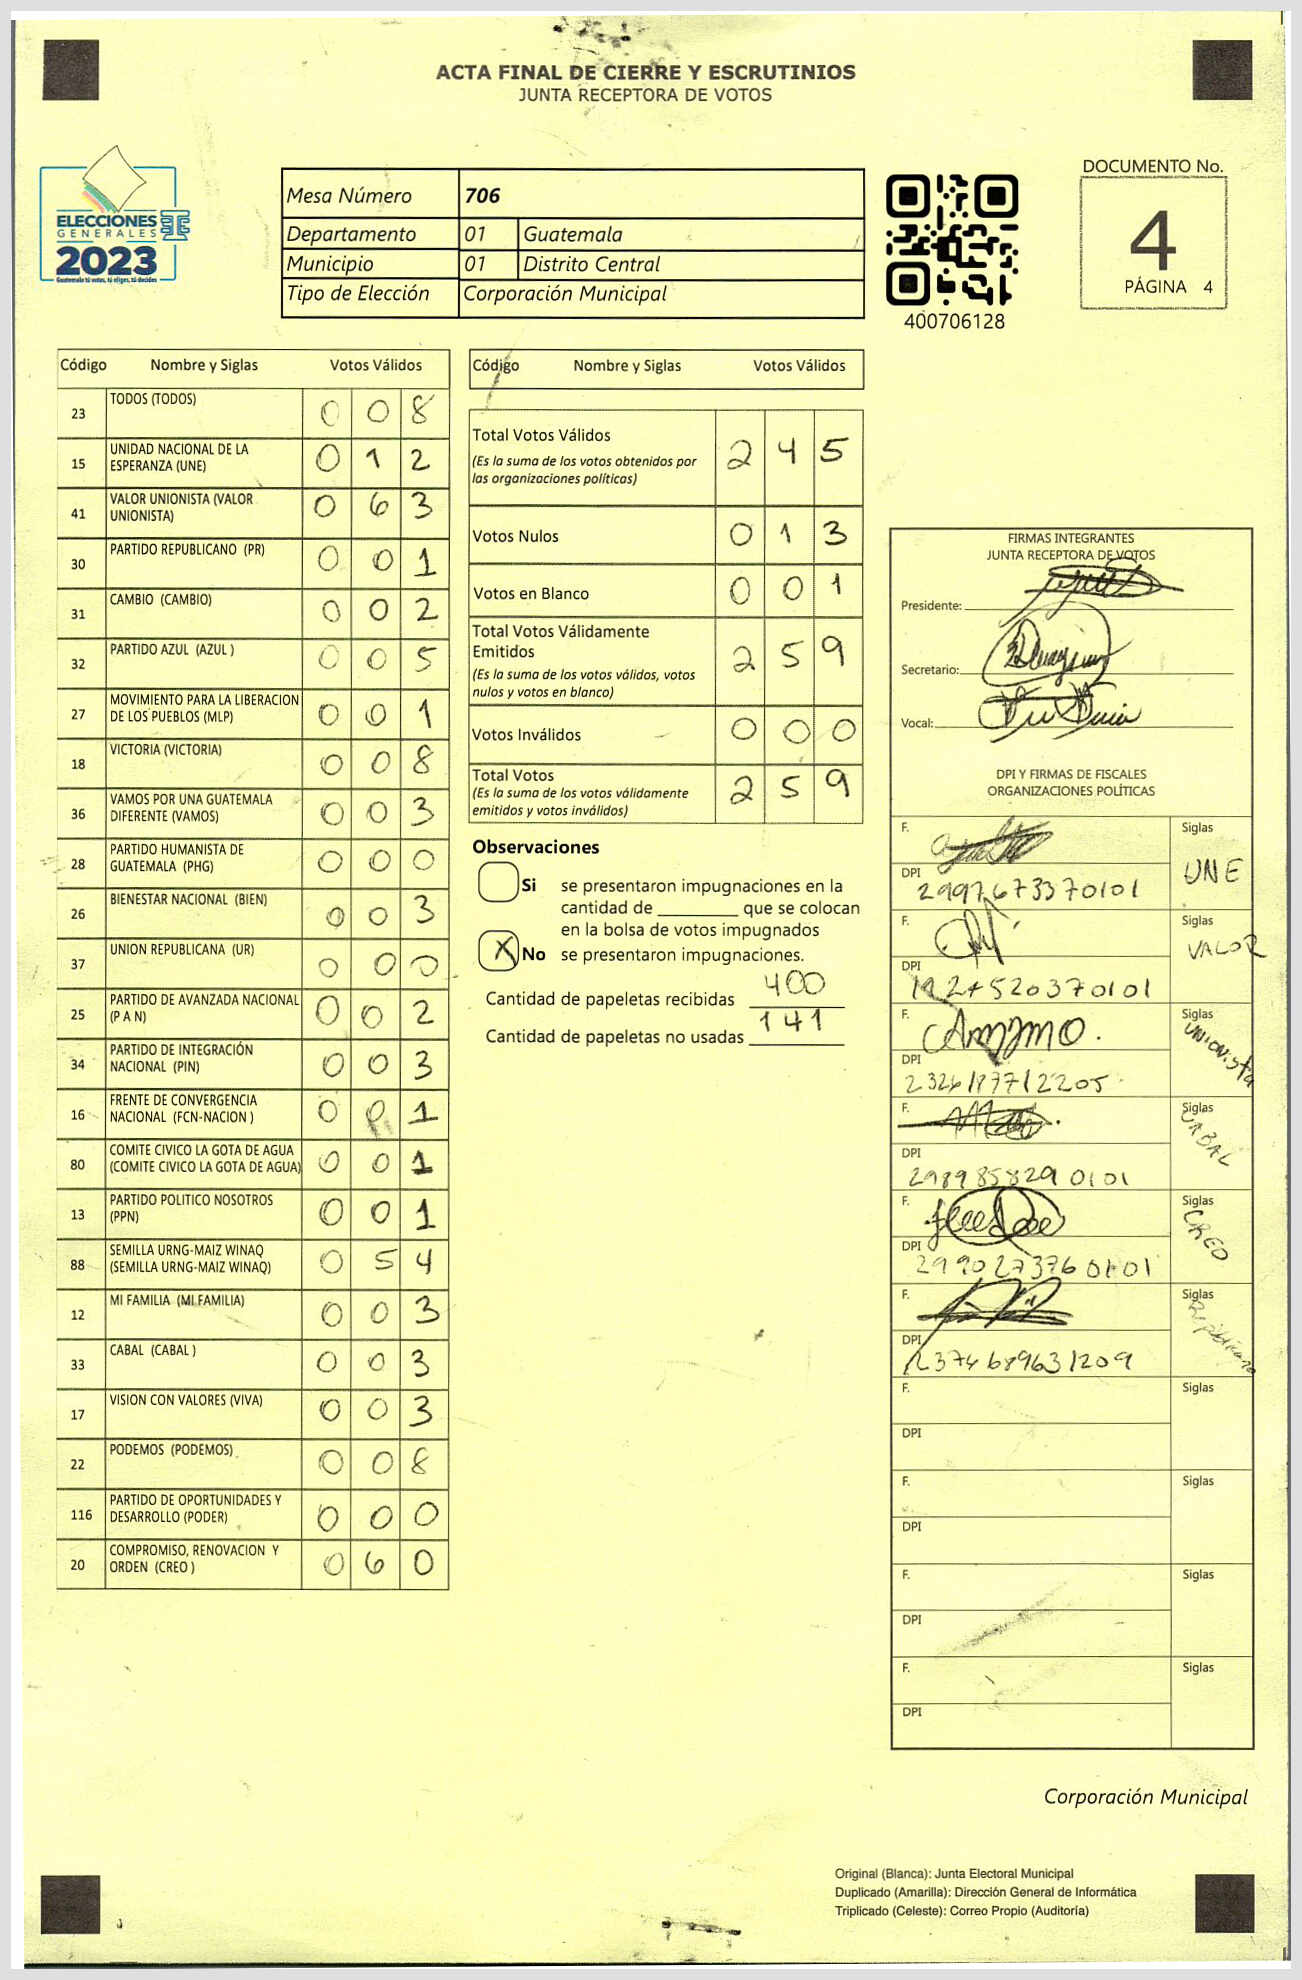 ACTA FINAL DE CIERRE Y ESCRUTINIOS
JUNTA RECEPTORA DE VOTOS
ELECCIONES
GENERALES
2023
Guatemala tú votas, tú eliges, tú decides
Mesa Número 706
Departamento 01 Guatemala
Municipio 01 Distrito Central
Tipo de Elección Corporación Municipal
400706128
DOCUMENTO No.
4
PÁGINA 4
Código Nombre y Siglas Votos Válidos
23 TODOS (TODOS) 0 0 8
15 UNIDAD NACIONAL DE LA ESPERANZA (UNE) 0 1 2
41 VALOR UNIONISTA (VALOR UNIONISTA) 0 6 3
30 PARTIDO REPUBLICANO (PR) 0 0 1
31 CAMBIO (CAMBIO) 0 0 2
32 PARTIDO AZUL (AZUL ) 0 0 5
27 MOVIMIENTO PARA LA LIBERACION DE LOS PUEBLOS (MLP) 0 0 1
18 VICTORIA (VICTORIA) 0 0 8
36 VAMOS POR UNA GUATEMALA DIFERENTE (VAMOS) 0 0 3
28 PARTIDO HUMANISTA DE GUATEMALA (PHG) 0 0 0
26 BIENESTAR NACIONAL (BIEN) 0 0 3
37 UNION REPUBLICANA (UR) 0 0 0
25 PARTIDO DE AVANZADA NACIONAL (P A N) 0 0 2
34 PARTIDO DE INTEGRACIÓN NACIONAL (PIN) 0 0 3
16 FRENTE DE CONVERGENCIA NACIONAL (FCN-NACION ) 0 0 1
80 COMITE CIVICO LA GOTA DE AGUA (COMITE CIVICO LA GOTA DE AGUA) 0 0 1
13 PARTIDO POLITICO NOSOTROS (PPN) 0 0 1
88 SEMILLA URNG-MAIZ WINAQ (SEMILLA URNG-MAIZ WINAQ) 0 5 4
12 MI FAMILIA (MI FAMILIA) 0 0 3
33 CABAL (CABAL ) 0 0 3
17 VISION CON VALORES (VIVA) 0 0 3
22 PODEMOS (PODEMOS) 0 0 8
116 PARTIDO DE OPORTUNIDADES Y DESARROLLO (PODER) 0 0 0
20 COMPROMISO, RENOVACION Y ORDEN (CREO ) 0 6 0
Código Nombre y Siglas Votos Válidos
Total Votos Válidos 2 4 5
(Es la suma de los votos obtenidos por
las organizaciones políticas)
Votos Nulos 0 1 3
Votos en Blanco 0 0 1
Total Votos Válidamente
Emitidos 2 5 9
(Es la suma de los votos válidos, votos
nulos y votos en blanco)
Votos Inválidos 0 0 0
Total Votos 2 5 9
(Es la suma de los votos válidamente
emitidos y votos inválidos)
Observaciones
Si se presentaron impugnaciones en la
cantidad de ________ que se colocan
en la bolsa de votos impugnados
X No se presentaron impugnaciones.
Cantidad de papeletas recibidas 400
Cantidad de papeletas no usadas 141
FIRMAS INTEGRANTES
JUNTA RECEPTORA DE VOTOS
Presidente:
Secretario:
Vocal:
DPI Y FIRMAS DE FISCALES
ORGANIZACIONES POLÍTICAS
F. Siglas
UNE
DPI
2997673370101
F. Siglas
VALOR
DPI
F. Siglas
UNIONISTA
DPI
2326187712205
F. Siglas
CABAL
DPI
2989858290101
F. Siglas
CREO
DPI
2990273760101
F. Siglas
Republicano
DPI
2374689631209
F. Siglas
DPI
F. Siglas
DPI
F. Siglas
DPI
F. Siglas
DPI
Corporación Municipal
Original (Blanca): Junta Electoral Municipal
Duplicado (Amarilla): Dirección General de Informática
Triplicado (Celeste): Correo Propio (Auditoría)